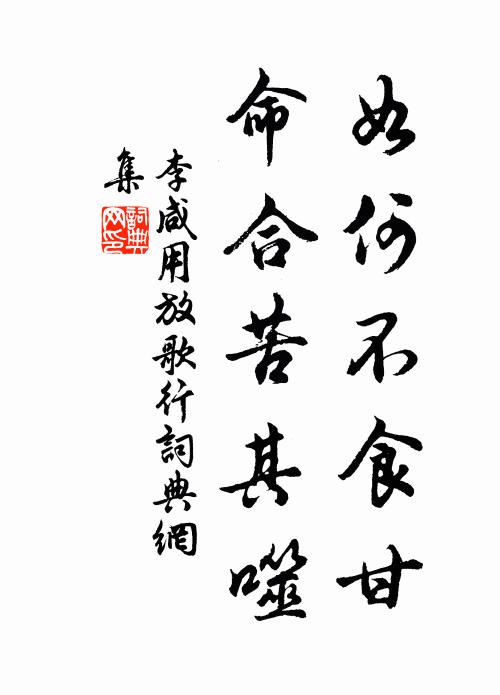 如何不食甘
命合苦其噬
李咸用放歌行詞典網
集
詞典網印